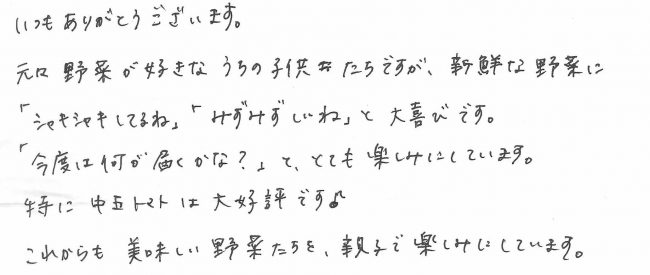 いつもありがとうございます。
元々野菜が好きなうちの子供たちですが、新鮮な野菜に
「シャキシャキしてるね」「みずみずしいね」と大喜びです。
「今度は何が届くかな？」と、とても楽しみにしています。
特に中玉トマトは大好評です♪
これからも美味しい野菜たちを、親子で楽しみにしています。